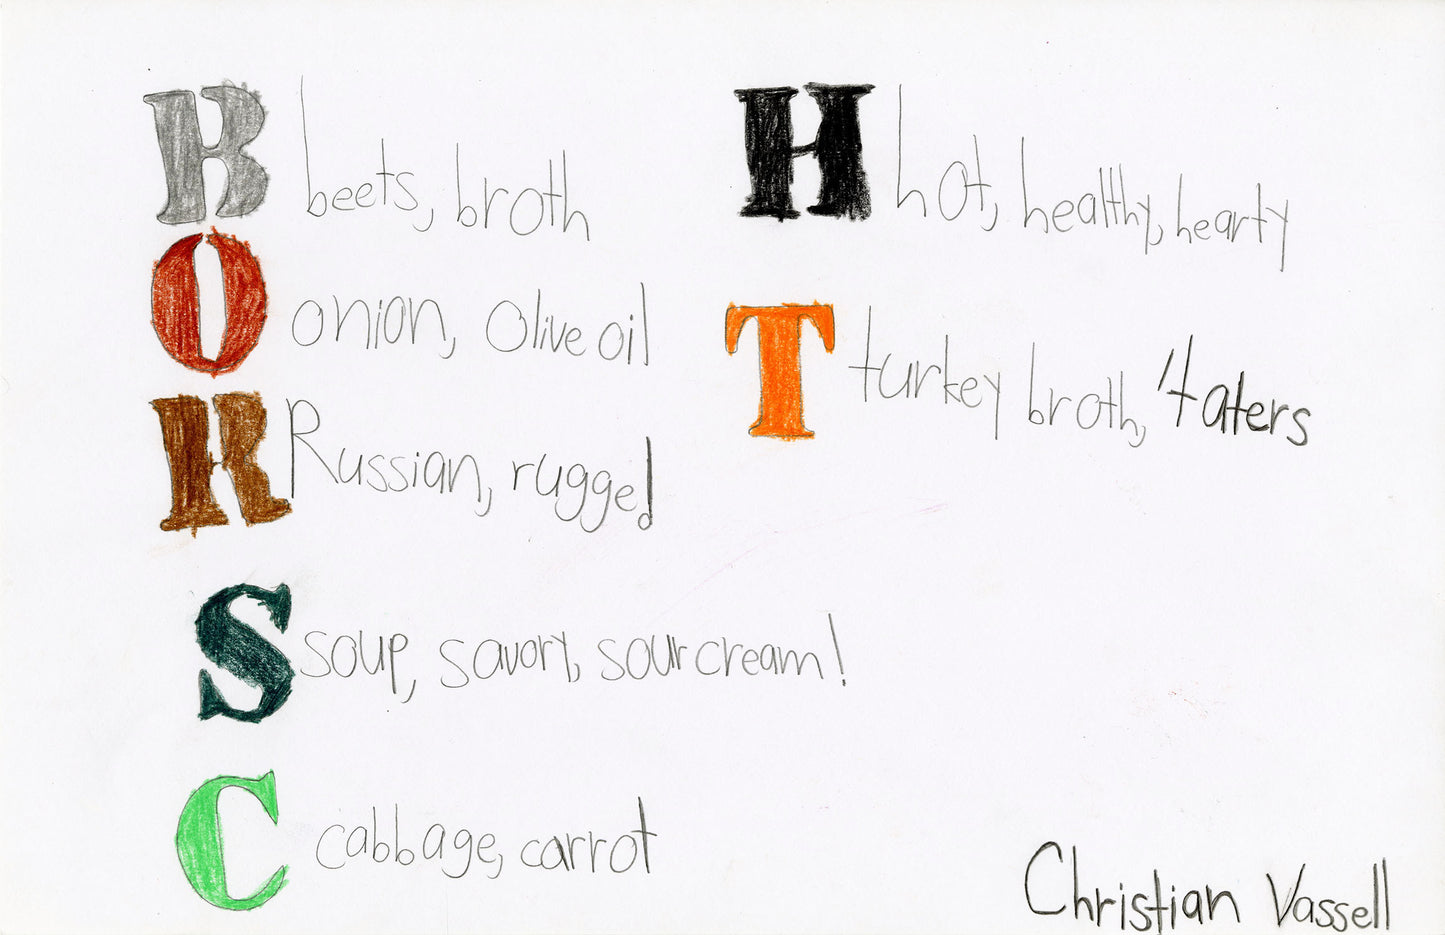 B beets, broth
O onion, olive oil
R Russian, rugged
S soup, savory, sour cream!
C cabbage, carrot
H hot, healthy, hearty
T turkey broth, 'taters
Christian Vassell